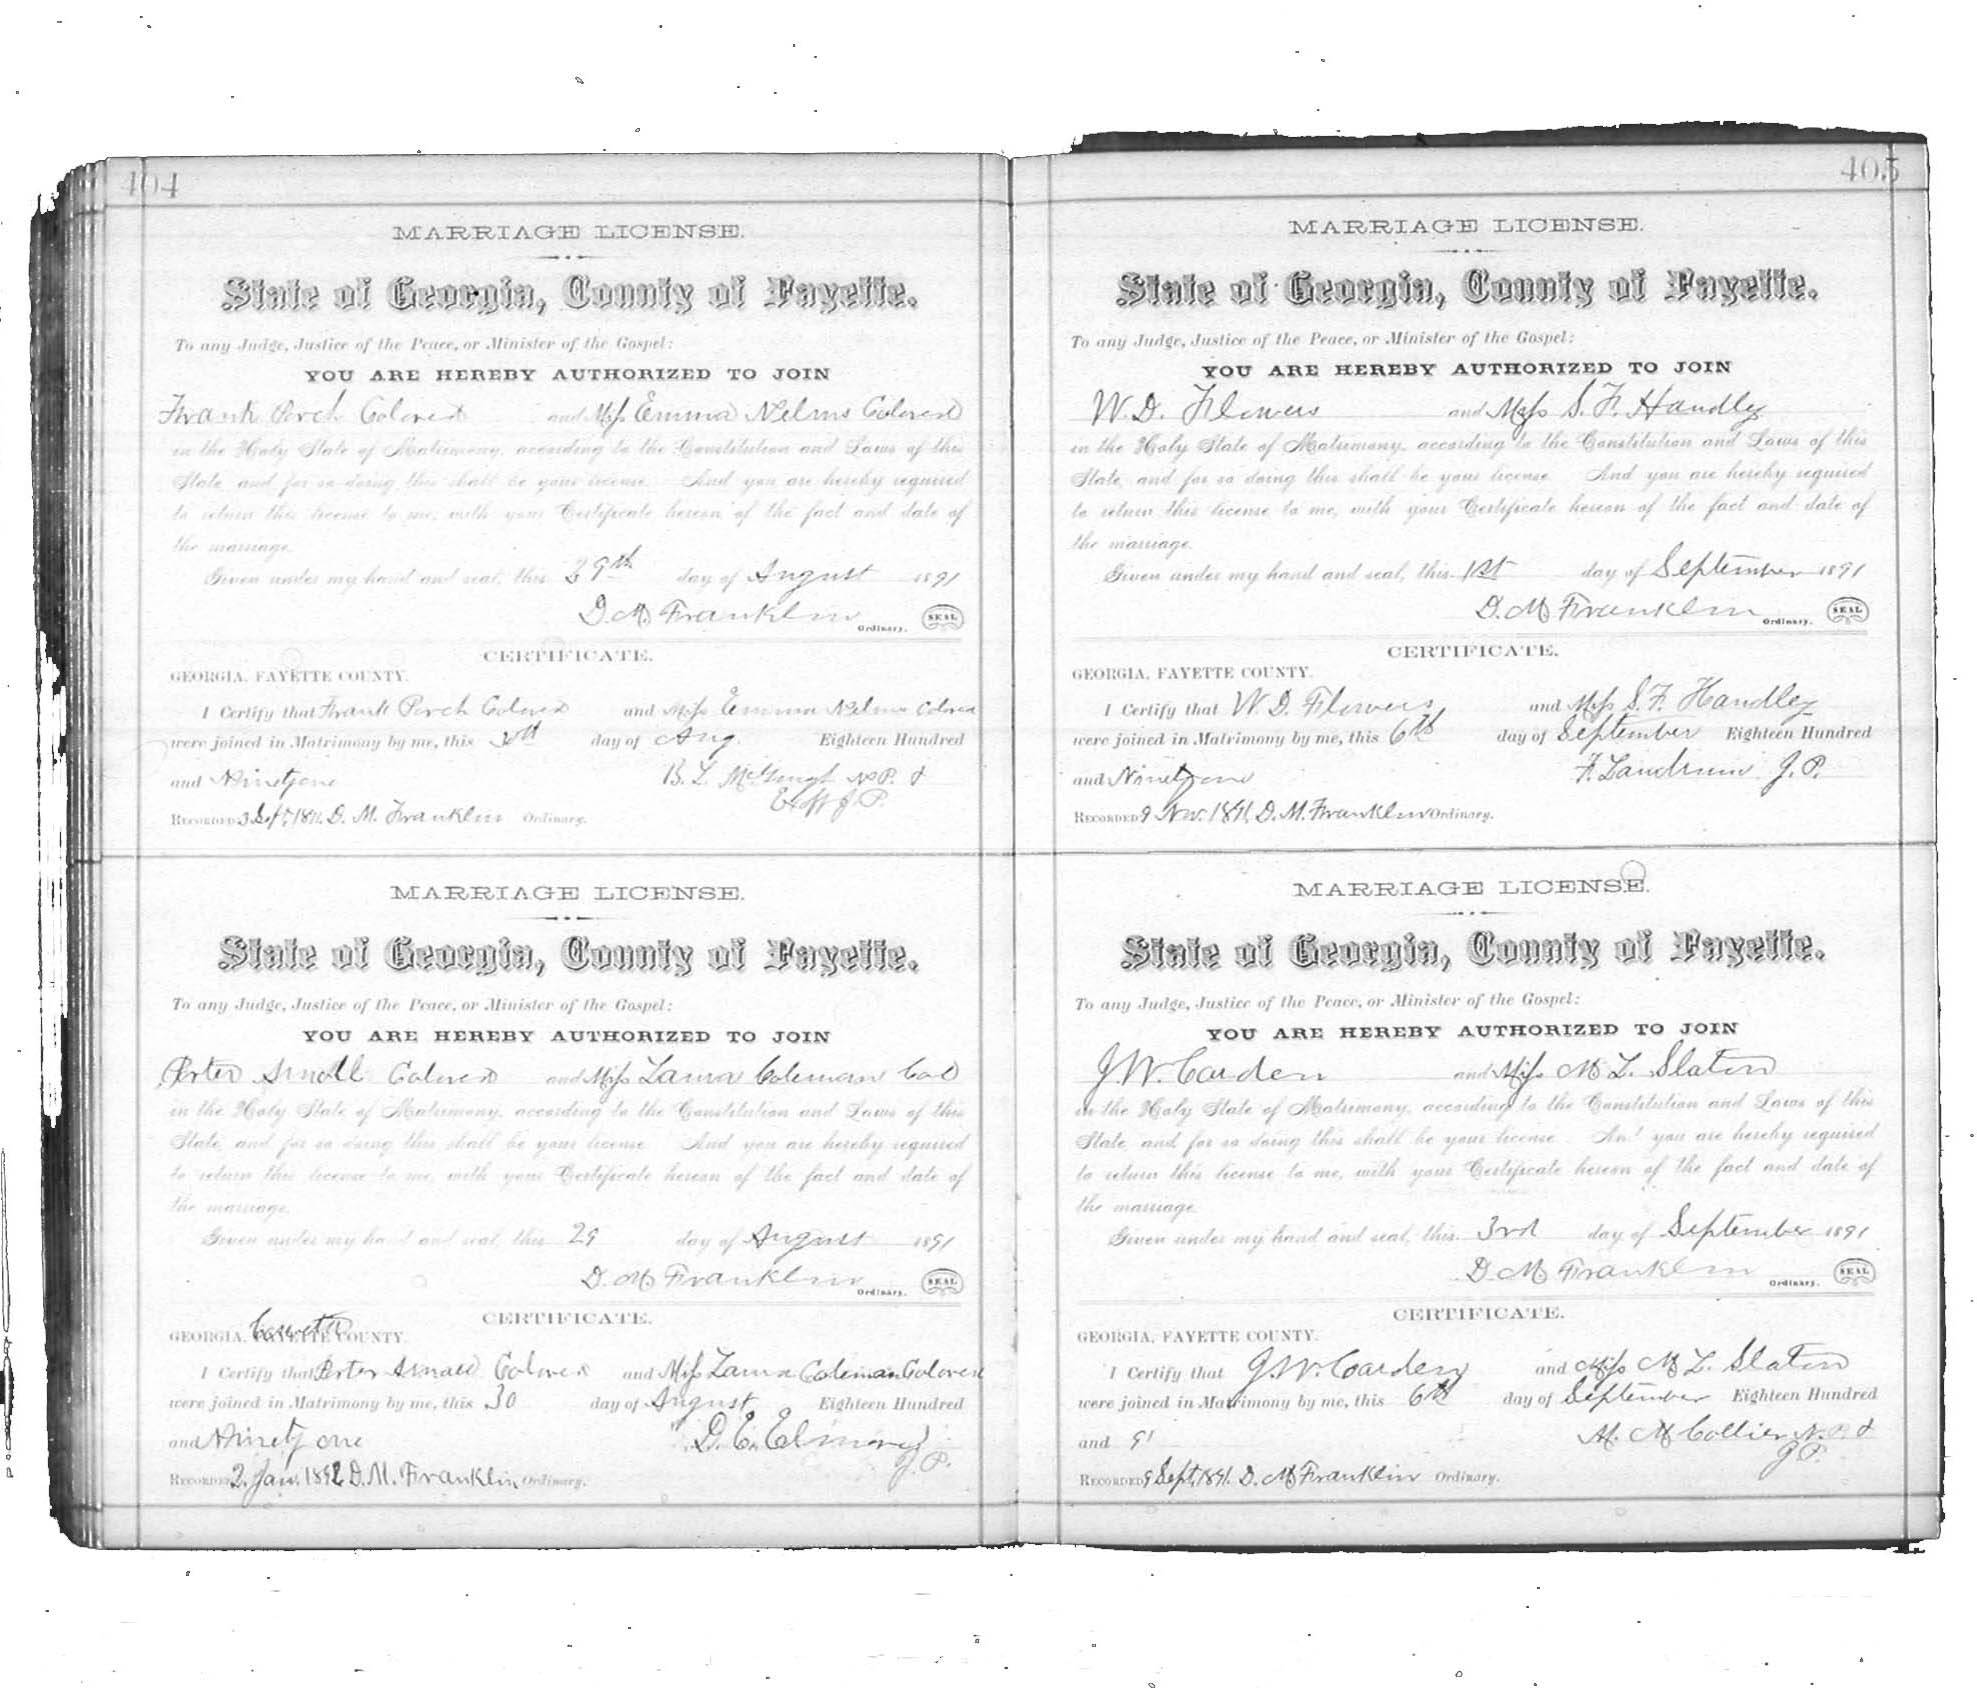 404
MARRIAGE LICENSE.
State of Georgia, County of Fayette.
To any Judge, Justice of the Peace, or Minister of the Gospel:
YOU ARE HEREBY AUTHORIZED TO JOIN
Frank Porch Colored and Miss Emma Nelms Colored
in the Holy State of Matrimony, according to the Constitution and Laws of this
State, and for so doing this shall be your license. And you are hereby required
to return this license to me, with your Certificate hereon of the fact and date of
the marriage.
Given under my hand and seal, this 29th day of August 1891
D. M. Franklin Ordinary. SEAL
CERTIFICATE.
GEORGIA, FAYETTE COUNTY.
I Certify that Frank Porch Colored and Miss Emma Nelms Colored
were joined in Matrimony by me, this day of Aug. Eighteen Hundred
and Ninety one B. L. N.P. &
Ex off J.P.
RECORDED 3 Sept. 1891. D. M. Franklin Ordinary.
MARRIAGE LICENSE.
State of Georgia, County of Fayette.
To any Judge, Justice of the Peace, or Minister of the Gospel:
YOU ARE HEREBY AUTHORIZED TO JOIN
Porter Colored and Miss Laura Coleman Col
in the Holy State of Matrimony, according to the Constitution and Laws of this
State, and for so doing this shall be your license. And you are hereby required
to return this license to me, with your Certificate hereon of the fact and date of
the marriage.
Given under my hand and seal, this 29 day of August 1891
D. M. Franklin Ordinary. SEAL
CERTIFICATE.
GEORGIA, Coweta COUNTY.
I Certify that Porter Colored and Miss Laura Coleman Colored
were joined in Matrimony by me, this 30 day of August Eighteen Hundred
and Ninety one D. E.
J. P.
RECORDED 2. Jan. 1892 D. M. Franklin, Ordinary.
405
MARRIAGE LICENSE.
State of Georgia, County of Fayette.
To any Judge, Justice of the Peace, or Minister of the Gospel:
YOU ARE HEREBY AUTHORIZED TO JOIN
W. D. Flowers and Miss S. F. Handley
in the Holy State of Matrimony, according to the Constitution and Laws of this
State, and for so doing this shall be your license. And you are hereby required
to return this license to me, with your Certificate hereon of the fact and date of
the marriage.
Given under my hand and seal, this 1st day of September 1891
D. M. Franklin Ordinary. SEAL
CERTIFICATE.
GEORGIA, FAYETTE COUNTY.
I Certify that W. D. Flowers and Miss S. F. Handley
were joined in Matrimony by me, this 6th day of September Eighteen Hundred
and Ninety one F. Landrum J. P.
RECORDED 9 Nov. 1891, D. M. Franklin Ordinary.
MARRIAGE LICENSE.
State of Georgia, County of Fayette.
To any Judge, Justice of the Peace, or Minister of the Gospel:
YOU ARE HEREBY AUTHORIZED TO JOIN
J. W. Carden and Miss M. L. Slaton
in the Holy State of Matrimony, according to the Constitution and Laws of this
State, and for so doing this shall be your license. And you are hereby required
to return this license to me, with your Certificate hereon of the fact and date of
the marriage.
Given under my hand and seal, this 3rd day of September 1891
D. M. Franklin Ordinary. SEAL
CERTIFICATE.
GEORGIA, FAYETTE COUNTY.
I Certify that J. W. Carden and Miss M. L. Slaton
were joined in Matrimony by me, this 6th day of September Eighteen Hundred
and 91 M. M. Collier N.P. &
J P.
RECORDED 9 Sept, 1891. D. M. Franklin Ordinary.